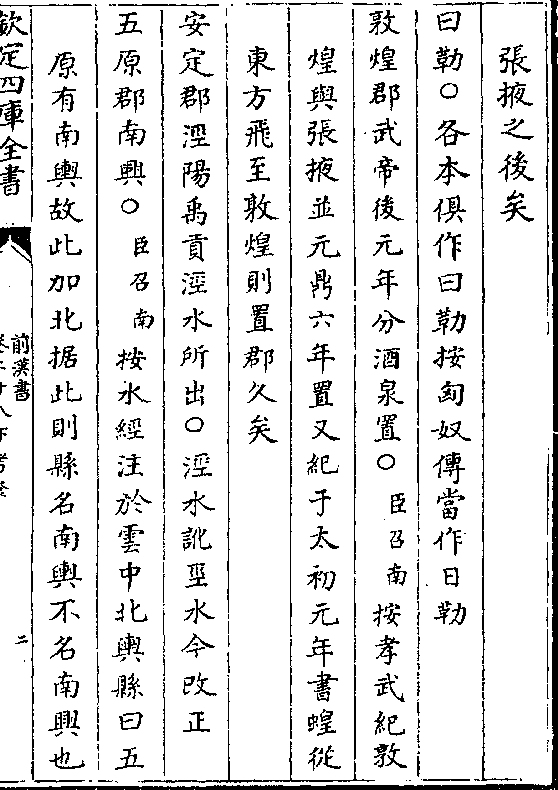 張掖之後矣
曰勒○各本俱作曰勒按匈奴傳當作日勒
敦煌郡武帝後元年分酒泉置○臣召南按孝武紀敦
煌與張掖並元鼎六年置又紀于太初元年書蝗從
東方飛至敦煌則置郡久矣
安定郡涇陽禹貢涇水所出○涇水訛巠水今改正
五原郡南興○臣召南按水經注於雲中北輿縣曰五
原有南輿故此加北据此則縣名南輿不名南興也
欽定四庫全書
前漢書
卷二十八下考證
二